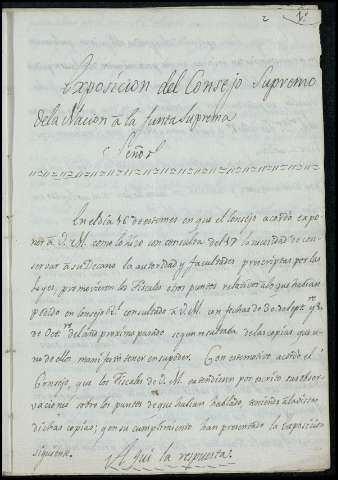 2 1.
Exposicion del Consejo Supremo
de la Nacion â la Junta Suprema
Señor
En el dia 16 de este mes en que el Consejo acordo expo
ner â V. M. como lo hizo con consulta del 17 la necesidad de con
servar â su Decano la autoridad y facultades prescriptas por las
Leyes, promovieron los Fiscales otros puntos relativos a lo que habian
pedido en Consejo Rl. consultado â V. M. con fechas de 30 de Sept.re y 3
de Oct.re del año proximo pasado segun resultaba de las copias, que u
no de ellos manifesto tener en su poder. Con este motivo acordó el
Consejo, que los Fiscales de V. M. extendiesen por escrito sus obser
vaciones sobre los puntos de que habian hablado, teniendo â la vista
dichas copias; y en su cumplimiento han presentado la exposicion
siguiente.
Aqui la respuesta.